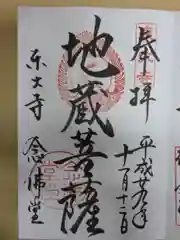 奉拝
平成廿九年
十一月十二日
地蔵菩薩
東大寺
念佛堂